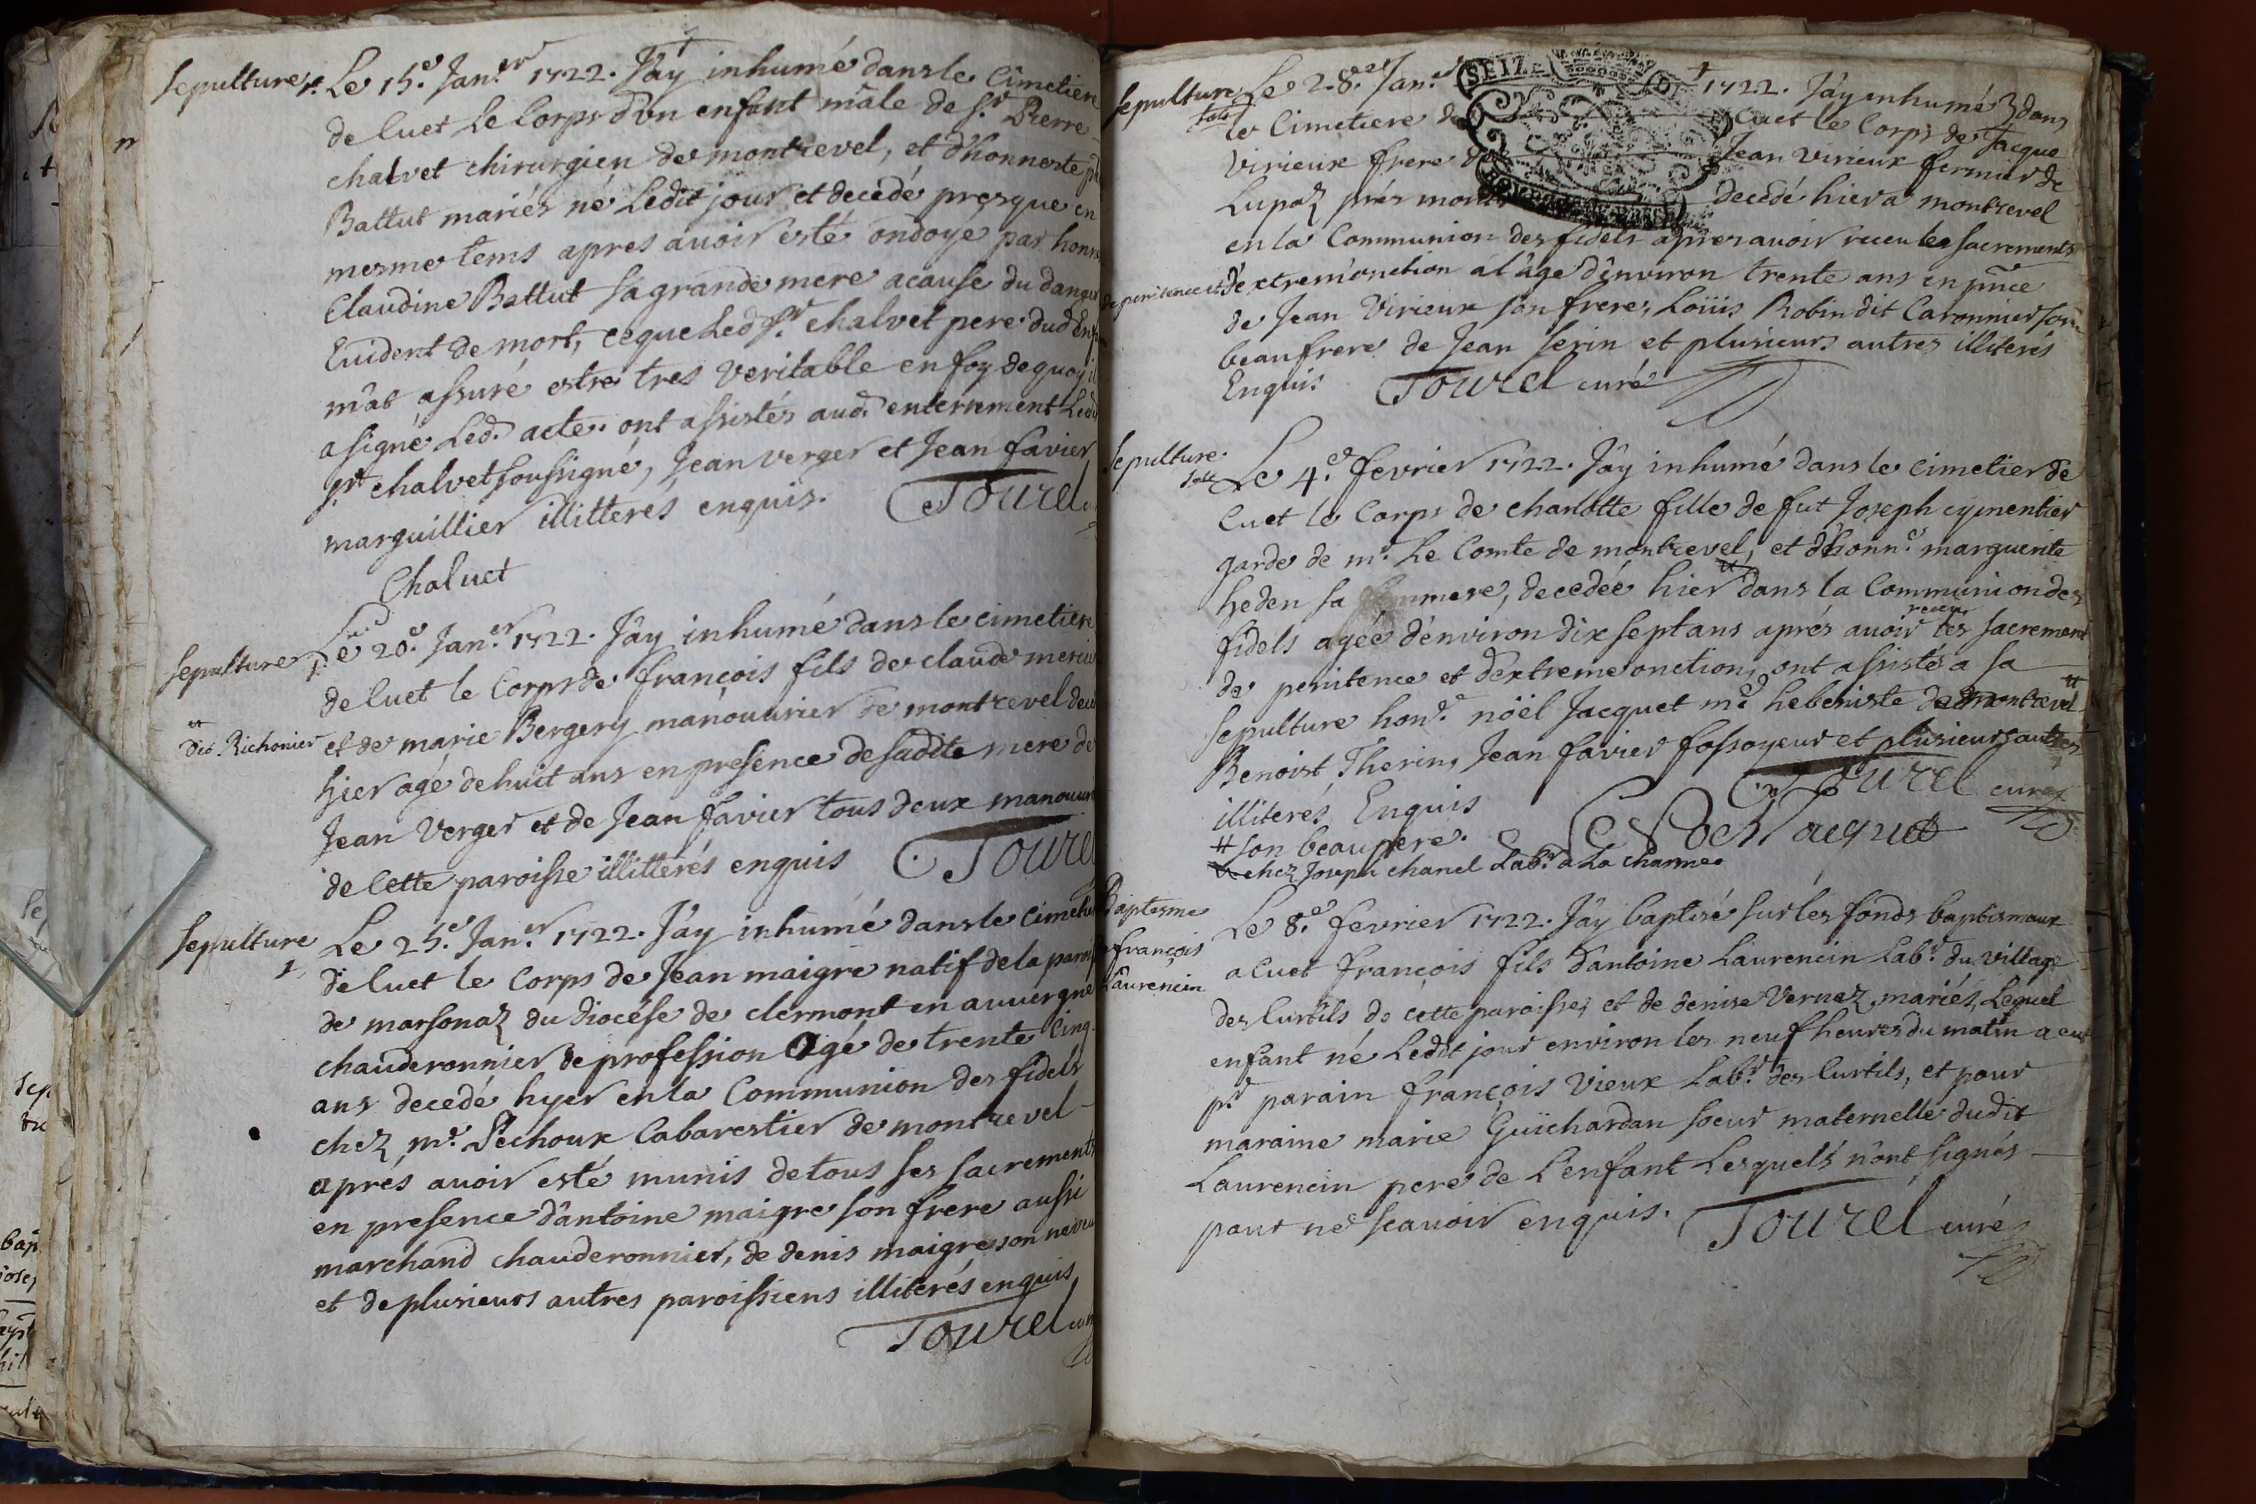 Sepulture Le 15.e Jan.er 1722. J'ay inhumé dans le Cimetiere
de Cuet Le Corps d'un enfant mâle de Sr. Pierre
chalvet chirurgien de montrevel, et d'honneste
Battut mariés né Ledit jour et decédé presque en
mesme tems apres avoir esté ondoyé par honn
Claudine Battut sa grande mere a cause du danger
Evident de mort, ce que Led Sr. chalvet pere dud Enf
m'at assuré estre tres veritable en foy de quoy il
a signé Led. acte. ont assistés aud. enterrement Led
Sr. chalvet soussigné, Jean verger et Jean favier
marguillier illitterés enquis. Tourel
Chalvet
Sepulture Le 20.e Jan.er 1722. J'ay inhumé dans le cimetiere
de Cuet le Corps de françois fils de claude
dit Richonier et de marie Bergery manouvrier de montrevel
hier agé de huit ans en presence de sadite mere de
Jean Verger et de Jean favier tous deux manouvri
de Cette paroisse illitterés enquis Tourel
Sepulture Le 25.e Jan.er 1722. J'ay inhumé dans le Cimetie
de Cuet le Corps de Jean maigre natif de la parois
de marsonaz du Diocése de clermont en auvergne
chauderonnier de profession agé de trente Cinq
ans decedé hyer en la Communion des fidels
chez mr. Pechoux Cabarestier de montrevel
aprés avoir esté munis de tous ses sacrements
en presence d'antoine maigre son frere aussi
marchand chauderonnier, de denis maigre son neveu
et de plusieurs autres paroissiens illiterés enquis
Tourel
SEIZE
Sepulture Le 28.e Jan. 1722. J'ay inhumé dans
le Cimetiere de Cuet le Corps de Jacque
Virieux frere de Jean Virieux fermier de
Lupaz prés mont decédé hier a montrevel
en la Communion des fidels apres avoir receu les sacrements
de penitence et d'extrem'onction a l'âge d'environ trente ans en pnce
de Jean Virieux son frere, Loüis Robin dit Caronnier son
beaufrere de Jean serin et plusieurs autres illiterés
Enquis Tourel curé
Sepulture Le 4.e fevrier 1722. J'ay inhumé dans le cimetier de
Cuet le Corps de charlotte fille de fut Joseph cymentier
garde de mr. Le Comte de montrevel, et d'honn.e marguerite
heden sa mere, decedée hier dans la Communion des
fidels agée d'environ dix sept ans aprés avoir receu les sacrement
de penitence et d'extreme onction, ont assistés a sa
Sepulture hon.e nöel Jacquet m.e hebeniste de montrevel
Benoist Therin, Jean favier fossoyeur et plusieurs autres
illiterés Enquis Tourel curé
son beaupere.
chez Joseph chanel Lab.r a La charme
Baptesme Le 8.e fevrier 1722. J'ay baptisé sur les fonds baptismaux
françois a Cuet françois fils d'antoine Laurencin Lab.r du village
Laurencin des Curtils de cette paroisse, et de denise Vernaz mariés, Lequel
enfant né Ledit jour environ les neuf heures du matin a eut
pr. parain françois Vieux Lab.r des Curtils, et pour
maraine marie Guichardan soeur maternelle dudit
Laurencin pere de L'enfant Lesquels n'ont signés
pour ne scavoir enquis. Tourel curé